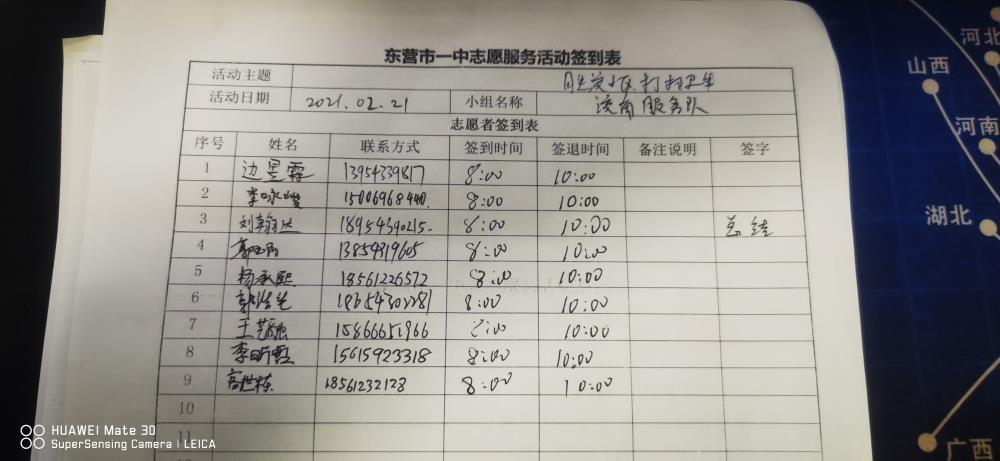 东营市一中志愿服务活动签到表
活动主题 打扫卫生
活动日期 2021.02.21 小组名称 服务队
志愿者签到表
序号 姓名 联系方式 签到时间 签退时间 备注说明 签字
1 边昱霖 13954339817 8:00 10:00
2 李咏 15006968440. 8:00 10:00
3 刘翰达 18954390215. 8:00 10:00 总结
4 13854819605 8:00 10:00
5 杨承熙 18561226572 8:00 10:00
6 8:00 10:00
7 王艺融 15866651966 8:00 10:00
8 李昕 15615923318 8:00 10:00
9 高世栋 18561232128 8:00 10:00
10
11
山西
河北
河南
湖北
广西
HUAWEI Mate 30
SuperSensing Camera | LEICA